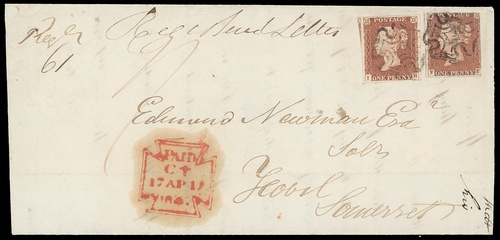 Registered Letter
61
POSTAGE
ONE PENNY
POSTAGE
ONE PENNY
Edmund Newman Esqr
Solr
Yeovil
Somerset
PAID
17 AP 17